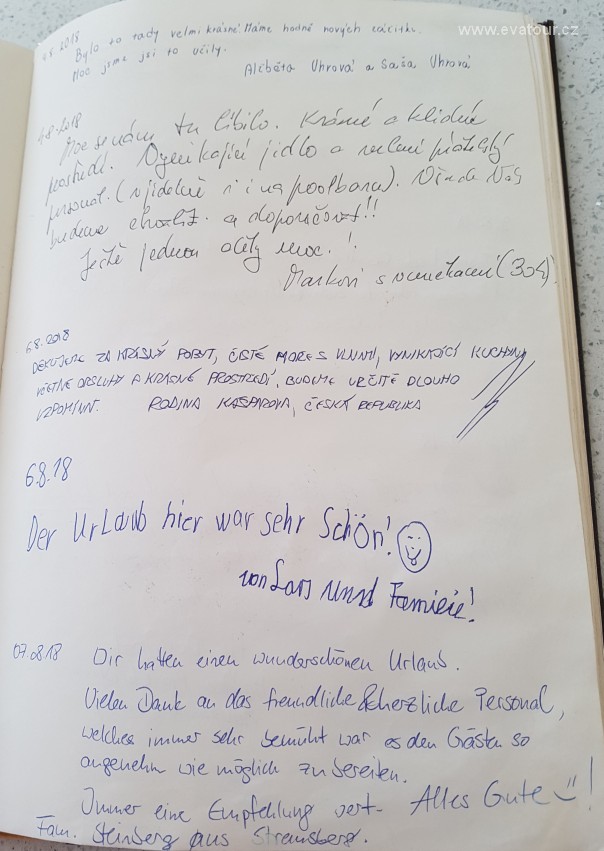 www.evatour.cz
4.8.2018
Bylo to tady velmi krásné! Máme hodně nových zážitků.
Moc jsme si to užily.
Alžběta Uhrová a Saša Uhrová
4.8.2018
Moc se nám tu líbilo. Krásné a klidné
prostředí. Vynikající jídlo a velmi přátelský
personál. (v jídelně i na poolbaru). Všude Vás
budeme chválit a doporučovat!!
Ještě jednou díky moc!
Markovi s (304)
6.8.2018
DĚKUJEME ZA KRÁSNÝ POBYT, ČISTÉ MOŘE S VLNMI, VYNIKAJÍCÍ KUCHYNI
VČETNĚ OBSLUHY A KRÁSNÉ PROSTŘEDÍ, BUDEME URČITĚ DLOUHO
VZPOMÍNAT. RODINA KAŠPAROVA, ČESKÁ REPUBLIKA
6.8.18
Der Urlaub hier war sehr Schön!
von Lars unnd Famieie!
07.08.18 Wir hatten einen wunderschönen Urlaub.
Vielen Dank an das freundliche & herzliche Personal,
welches immer sehr bemüht war es den Gästen so
angenehm wie möglich zu bereiten.
Immer eine Empfehlung wert- Alles Gute !
Fam. Steinberg aus Strausberg.